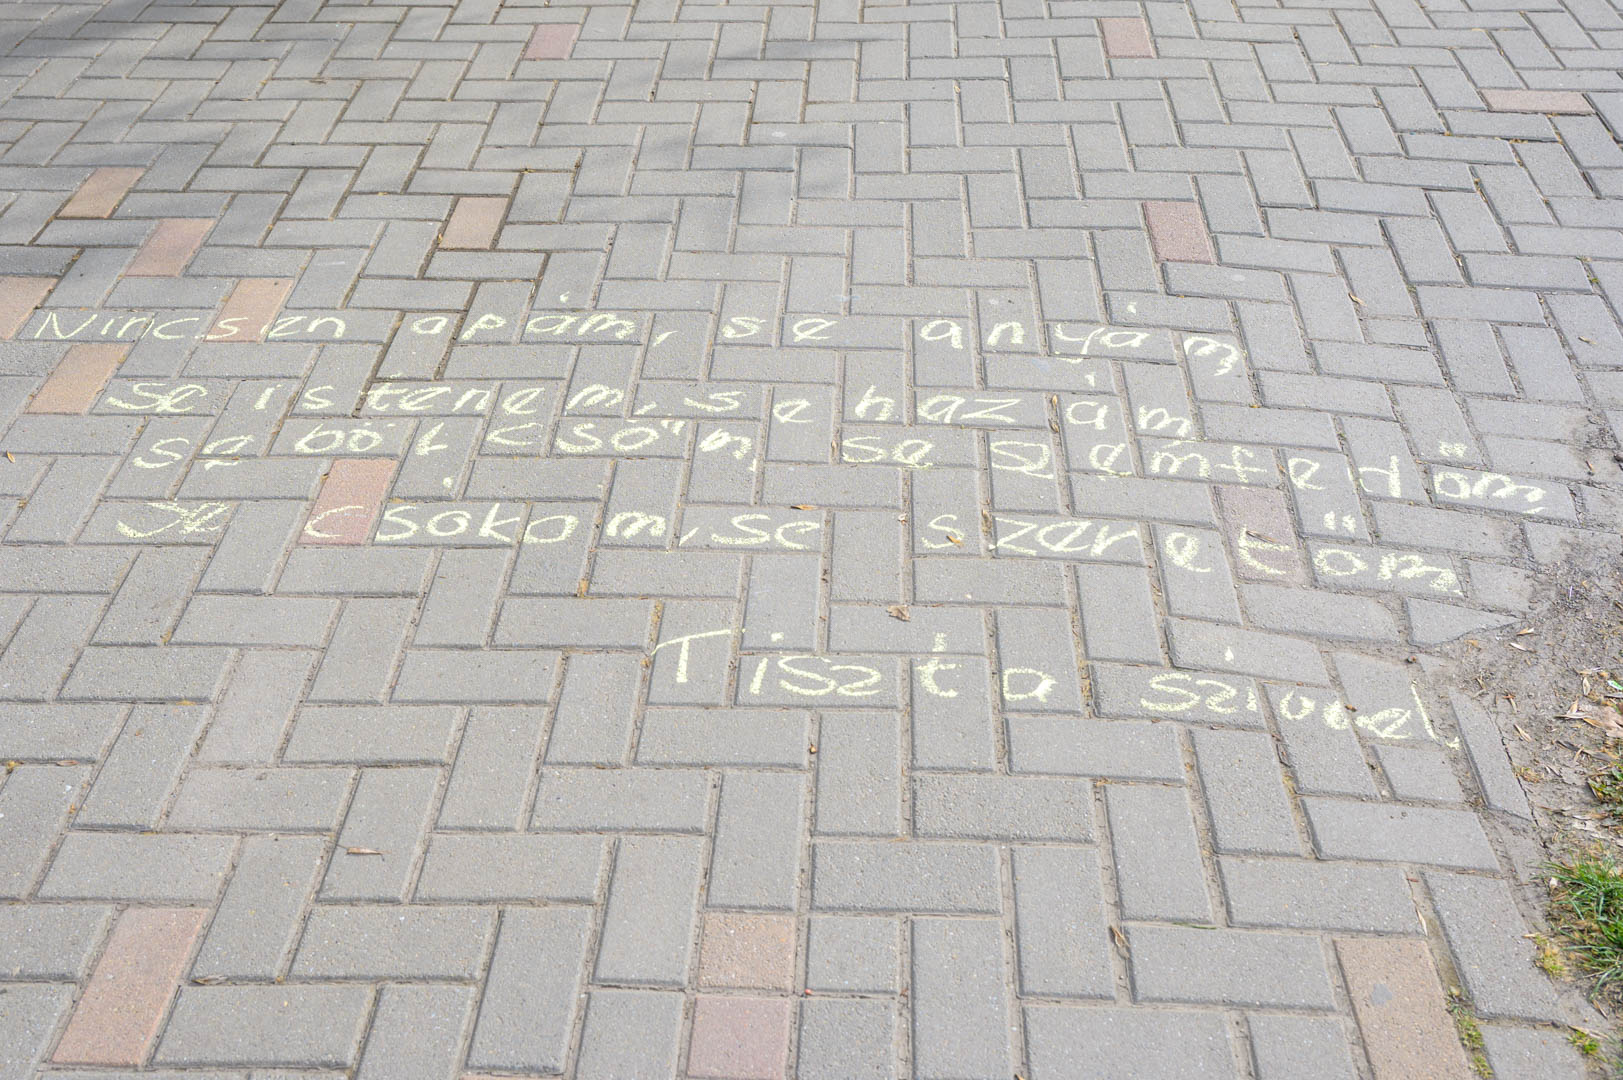 Nincsen apám, se anyám
se istenem, se hazám
se bölcsőm, se szemfedőm
se csókom, se szeretőm
Tiszta szívvel.